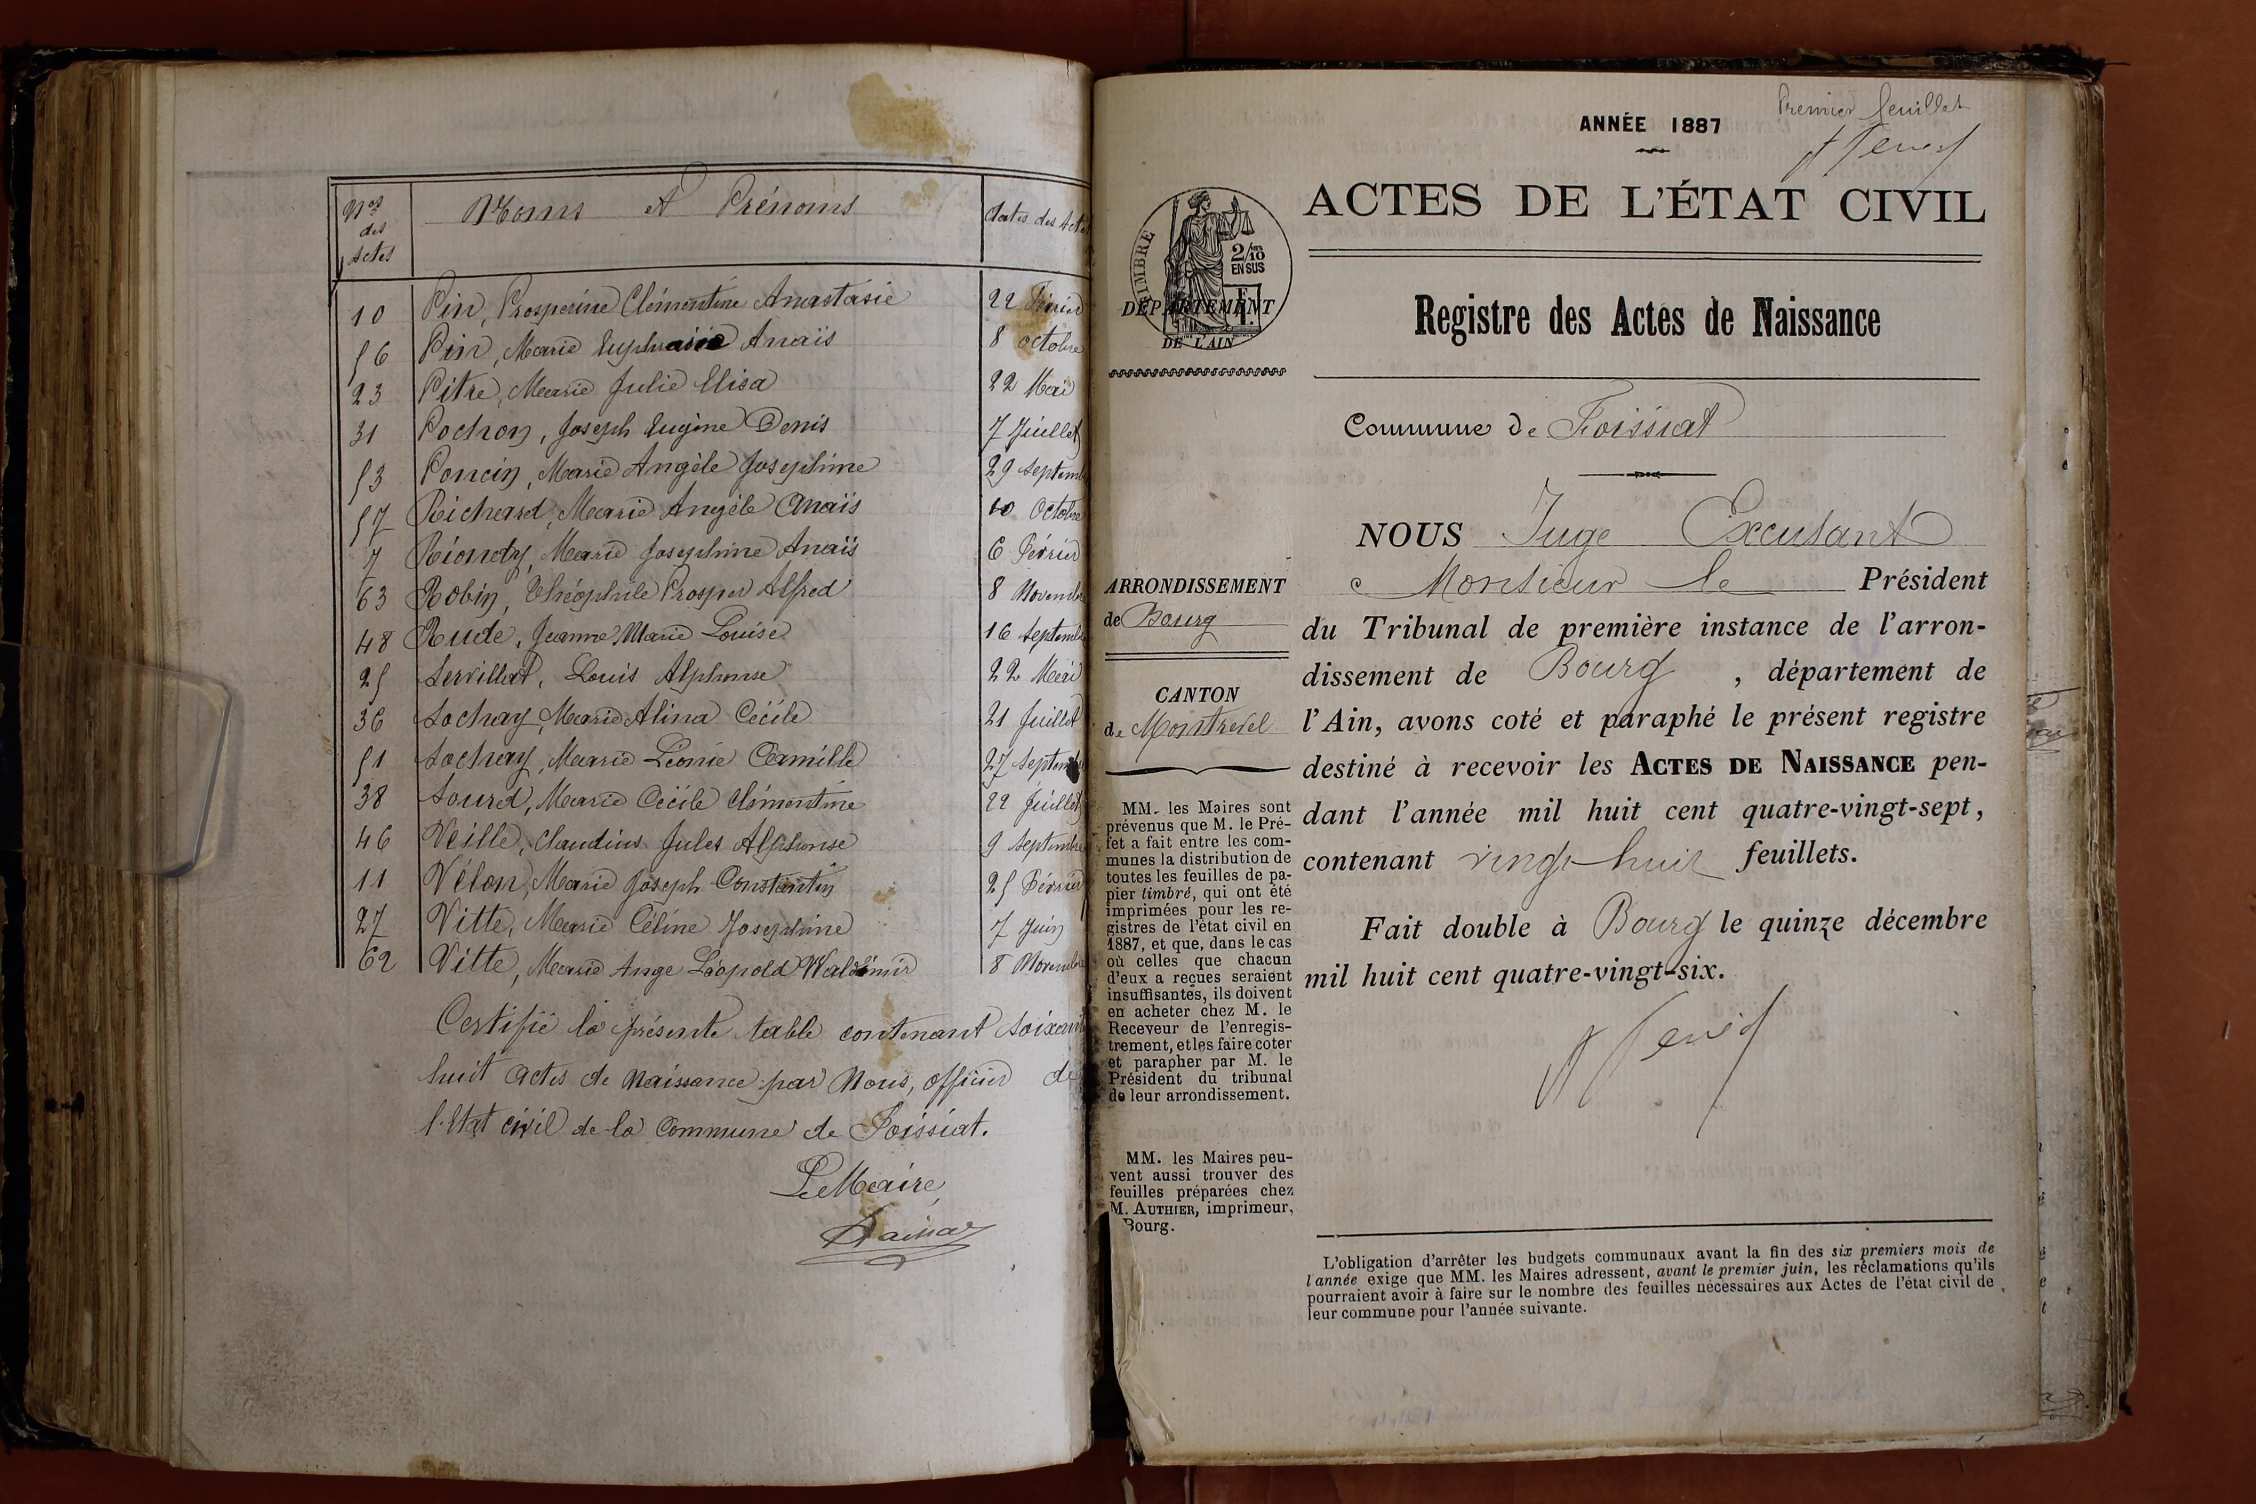 Nos des Actes Noms et Prénoms dates des Actes
10 Pin, Prosperine Clémentine Anastasie 22 Février
56 Pin, Marie Euphrasie Anaïs 8 octobre
23 Pitre, Marie Julie Elisa 22 Mai
31 Pochon, Joseph Eugène Denis 7 Juillet
53 Poncin, Marie Angèle Joséphine 29 septemb
57 Richard, Marie Angèle Anaïs 10 Octobre
7 Riondy, Marie Joséphine Anaïs 6 Février
63 Robin, Théophile Prosper Alfred 8 Novembre
48 Rude, Jeanne Marie Louise 16 septemb
25 Servillat, Louis Alphonse 22 Mai
36 Sochay, Marie Alina Cécile 21 Juillet
51 Sochay, Marie Léonie Camille 27 septemb
38 Sourd, Marie Cécile Clémentine 22 Juillet
46 Veille, Claudius Jules Alphonse 9 septembre
11 Vélon, Marie Joseph Constantin 25 Février
27 Vitte, Marie Céline Joséphine 7 Juin
62 Vitte, Marie Ange Léopold Waldémir 8 Novembre
Certifié la présente table contenant soixante
huit actes de Naissance par Nous, officier de
l'Etat civil de la Commune de Foissiat.
Le Maire,
Premier feuillet
ANNÉE 1887
ACTES DE L'ÉTAT CIVIL
TIMBRE
2/10 EN SUS
DÉPARTEMENT
DE L'AIN
Registre des Actes de Naissance
Commune de Foissiat
ARRONDISSEMENT
de Bourg
CANTON
de Montrevel
MM. les Maires sont
prévenus que M. le Pré-
fet a fait entre les com-
munes la distribution de
toutes les feuilles de pa-
pier timbré, qui ont été
imprimées pour les re-
gistres de l'état civil en
1887, et que, dans le cas
où celles que chacun
d'eux a reçues seraient
insuffisantes, ils doivent
en acheter chez M. le
Receveur de l'enregis-
trement, et les faire coter
et parapher par M. le
Président du tribunal
de leur arrondissement.
MM. les Maires peu-
vent aussi trouver des
feuilles préparées chez
M. AUTHIER, imprimeur,
Bourg.
NOUS Juge Excusant
Monsieur le Président
du Tribunal de première instance de l'arron-
dissement de Bourg, département de
l'Ain, avons coté et paraphé le présent registre
destiné à recevoir les ACTES DE NAISSANCE pen-
dant l'année mil huit cent quatre-vingt-sept,
contenant vingt huit feuillets.
Fait double à Bourg le quinze décembre
mil huit cent quatre-vingt-six.
L'obligation d'arrêter les budgets communaux avant la fin des six premiers mois de
l'année exige que MM. les Maires adressent, avant le premier juin, les réclamations qu'ils
pourraient avoir à faire sur le nombre des feuilles nécessaires aux Actes de l'état civil de
leur commune pour l'année suivante.